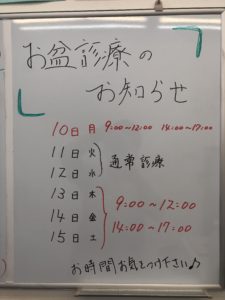 お盆診療の
お知らせ
10日 月 9:00~12:00 14:00~17:00
11日 火
12日 水
通常診療
13日 木
14日 金
15日 土
9:00~12:00
14:00~17:00
お時間お気をつけ下さい♪